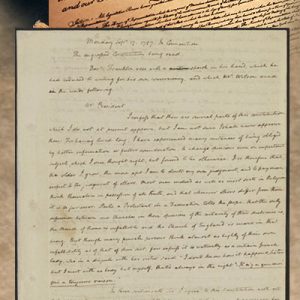 Monday Sepr. 17. 1787. In Convention
The engrossed Constitution being read.
Docr. Franklin rose with a speech in his hand, which he
had reduced to writing for his own conveniency, and which Mr. Wilson read
in the words following.
Mr. President
I confess that there are several parts of this constitution
which I do not at present approve, but I am not sure I shall never approve
them: For having lived long, I have experienced many instances of being obliged
by better information or fuller consideration, to change opinions even on important
subjects which I once thought right, but found to be otherwise. It is therefore that
the older I grow, the more apt I am to doubt my own judgment, and to pay more
respect to the judgment of others. Most men indeed as well as most sects in Religion
think themselves in possession of all truth, and that wherever others differ from them
it is so far error. Steele a Protestant in a Dedication tells the Pope, that the only
difference between our Churches in their opinions of the certainty of their doctrines is,
the Church of Rome is infallible and the Church of England is never in the
wrong. But though many private persons think almost as highly of their own
infallibility as of that of their sect, few express it so naturally as a certain french
lady, who in a dispute with her sister, said "I don't know how it happens, Sister
but I meet with no body but myself, that's always in the right" Il n'y a que moi
qui a toujours raison.
In these sentiments, Sir, I agree to this Constitution with all